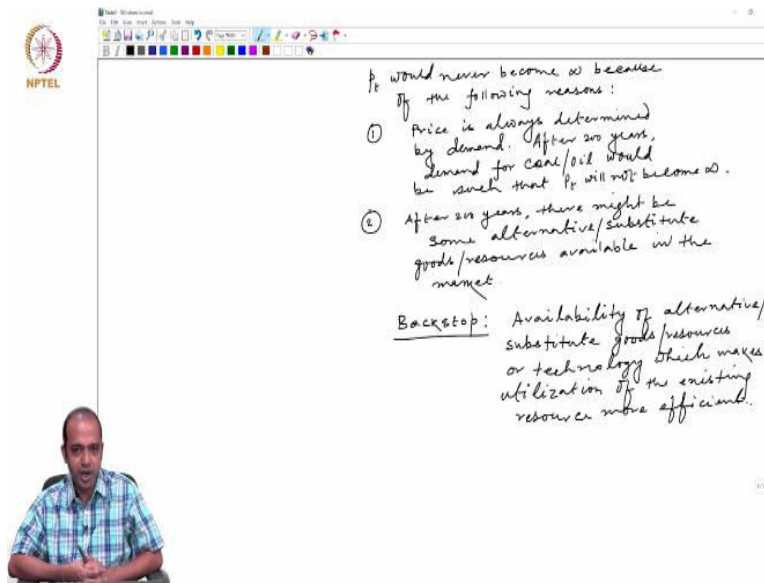 Note1 - Windows Journal
File Edit View Insert Actions Tools Help
B I
NPTEL
Pt would never become ∞ because
of the following reasons:
① Price is always determined
by demand. After 200 years,
demand for coal/oil would
be such that Pt will not become ∞.
② After 200 years, there might be
some alternative/substitute
goods/resources available in the
market.
Backstop: Availability of alternative/
substitute goods/resources
or technology which makes
utilization of the existing
resource more efficient.